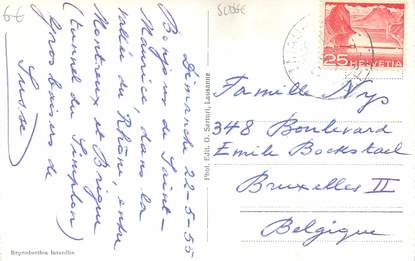 6€
SUISSE
25 HELVETIA
Dimanche 22-5-55
Bonjour de Saint-
Maurice, dans la
vallée du Rhône, entre
Montreux et Brigue
(tunnel du Simplon)
Gros baisers de
Famille Nys
348 Boulevard
Emile Bockstael
Bruxelles II
Belgique
Phot. Edit. O. Sartori, Lausanne
Reproduction interdite